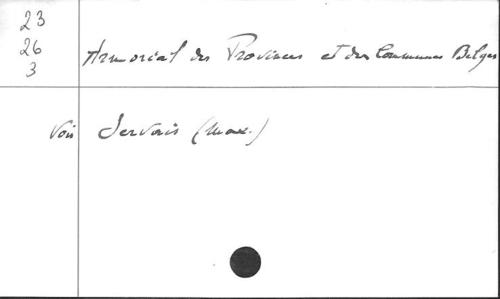 23
26
3
Armorial des Provinces et des Communes Belges
Voir Servais (Max.)